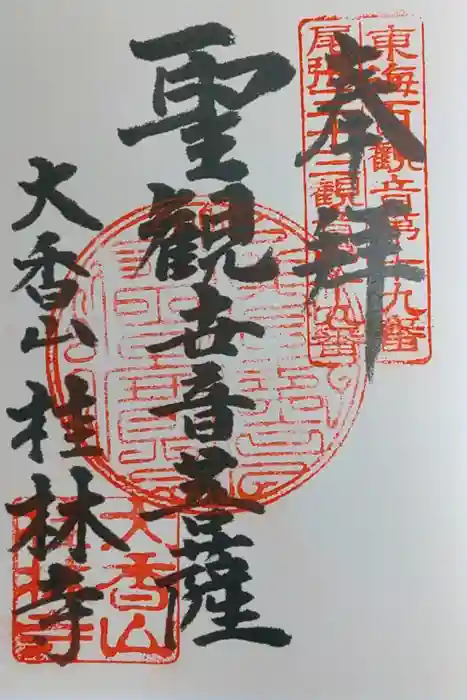 東海百觀音第十九番
尾張三十三觀音第十九番
奉拝
聖觀世音菩薩
大香山桂林寺
大香山
桂林寺